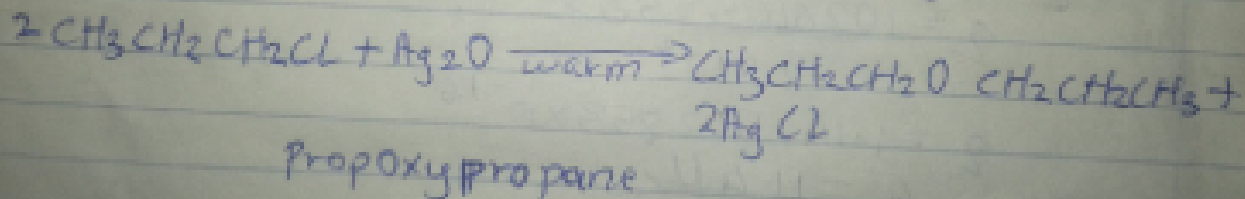 2 CH3CH2CH2Cl + Ag2O warm → CH3CH2CH2O CH2CH2CH3 +
2AgCl
Propoxypropane